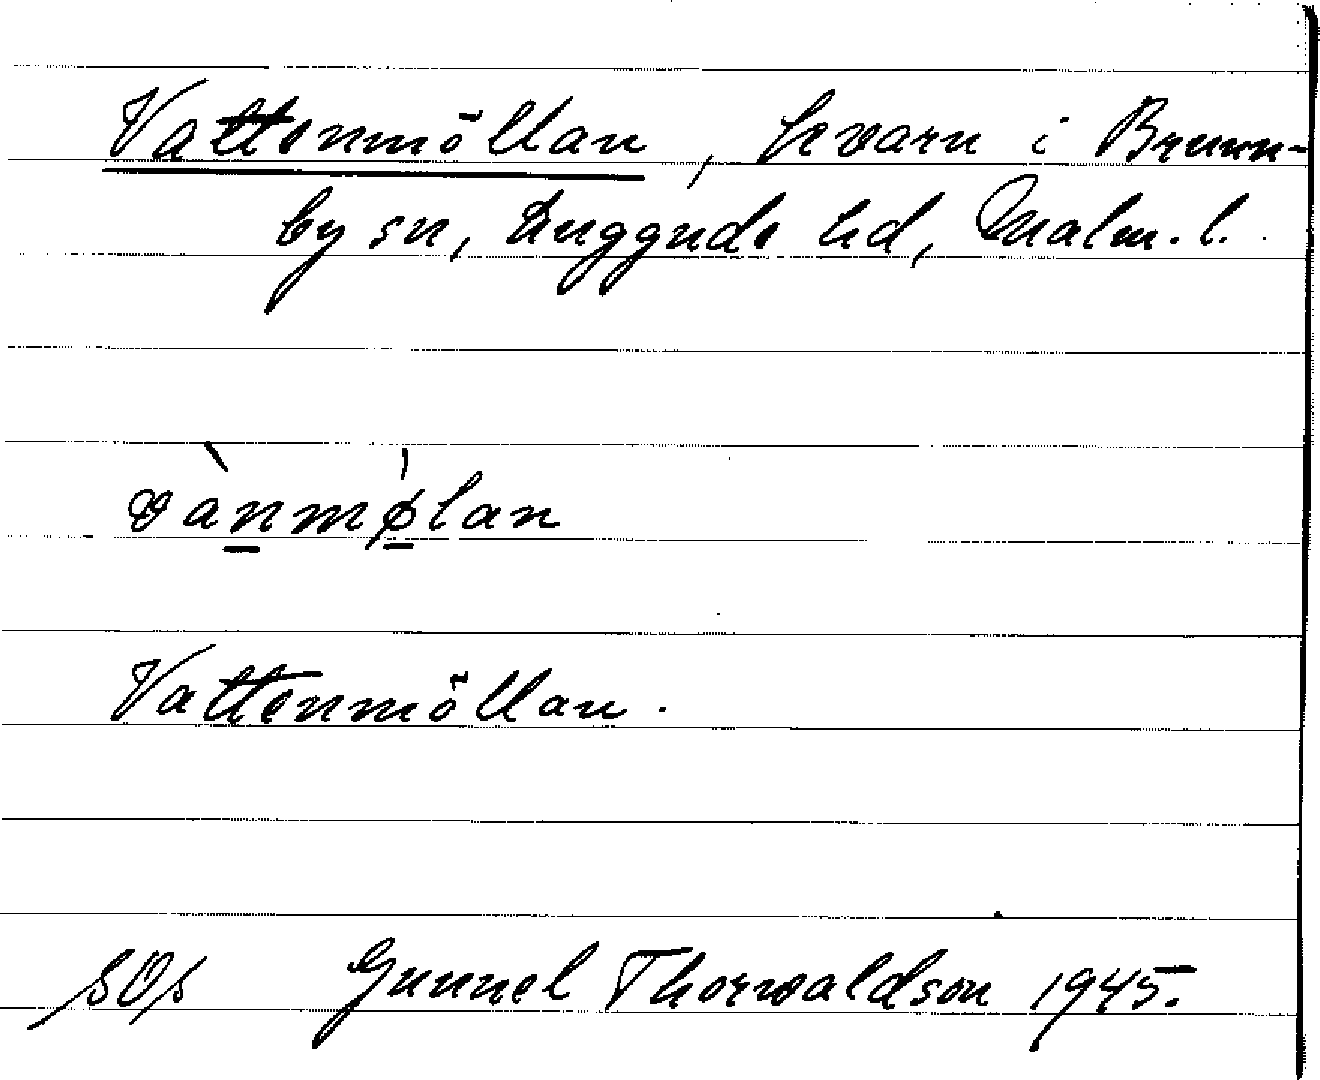 Vattenmöllan, kvarn i Brunn-
by sn, Luggude hd, Malm. l.
vànmølan
Vattenmöllan.
SOS Gunnel Thorwaldson 1945.